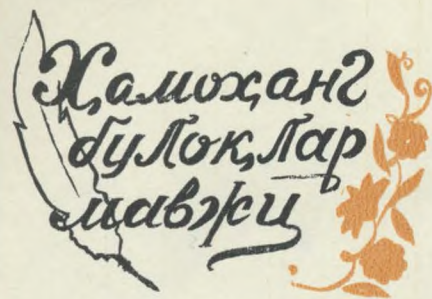 Ҳамоҳанг
булоқлар
мавжи